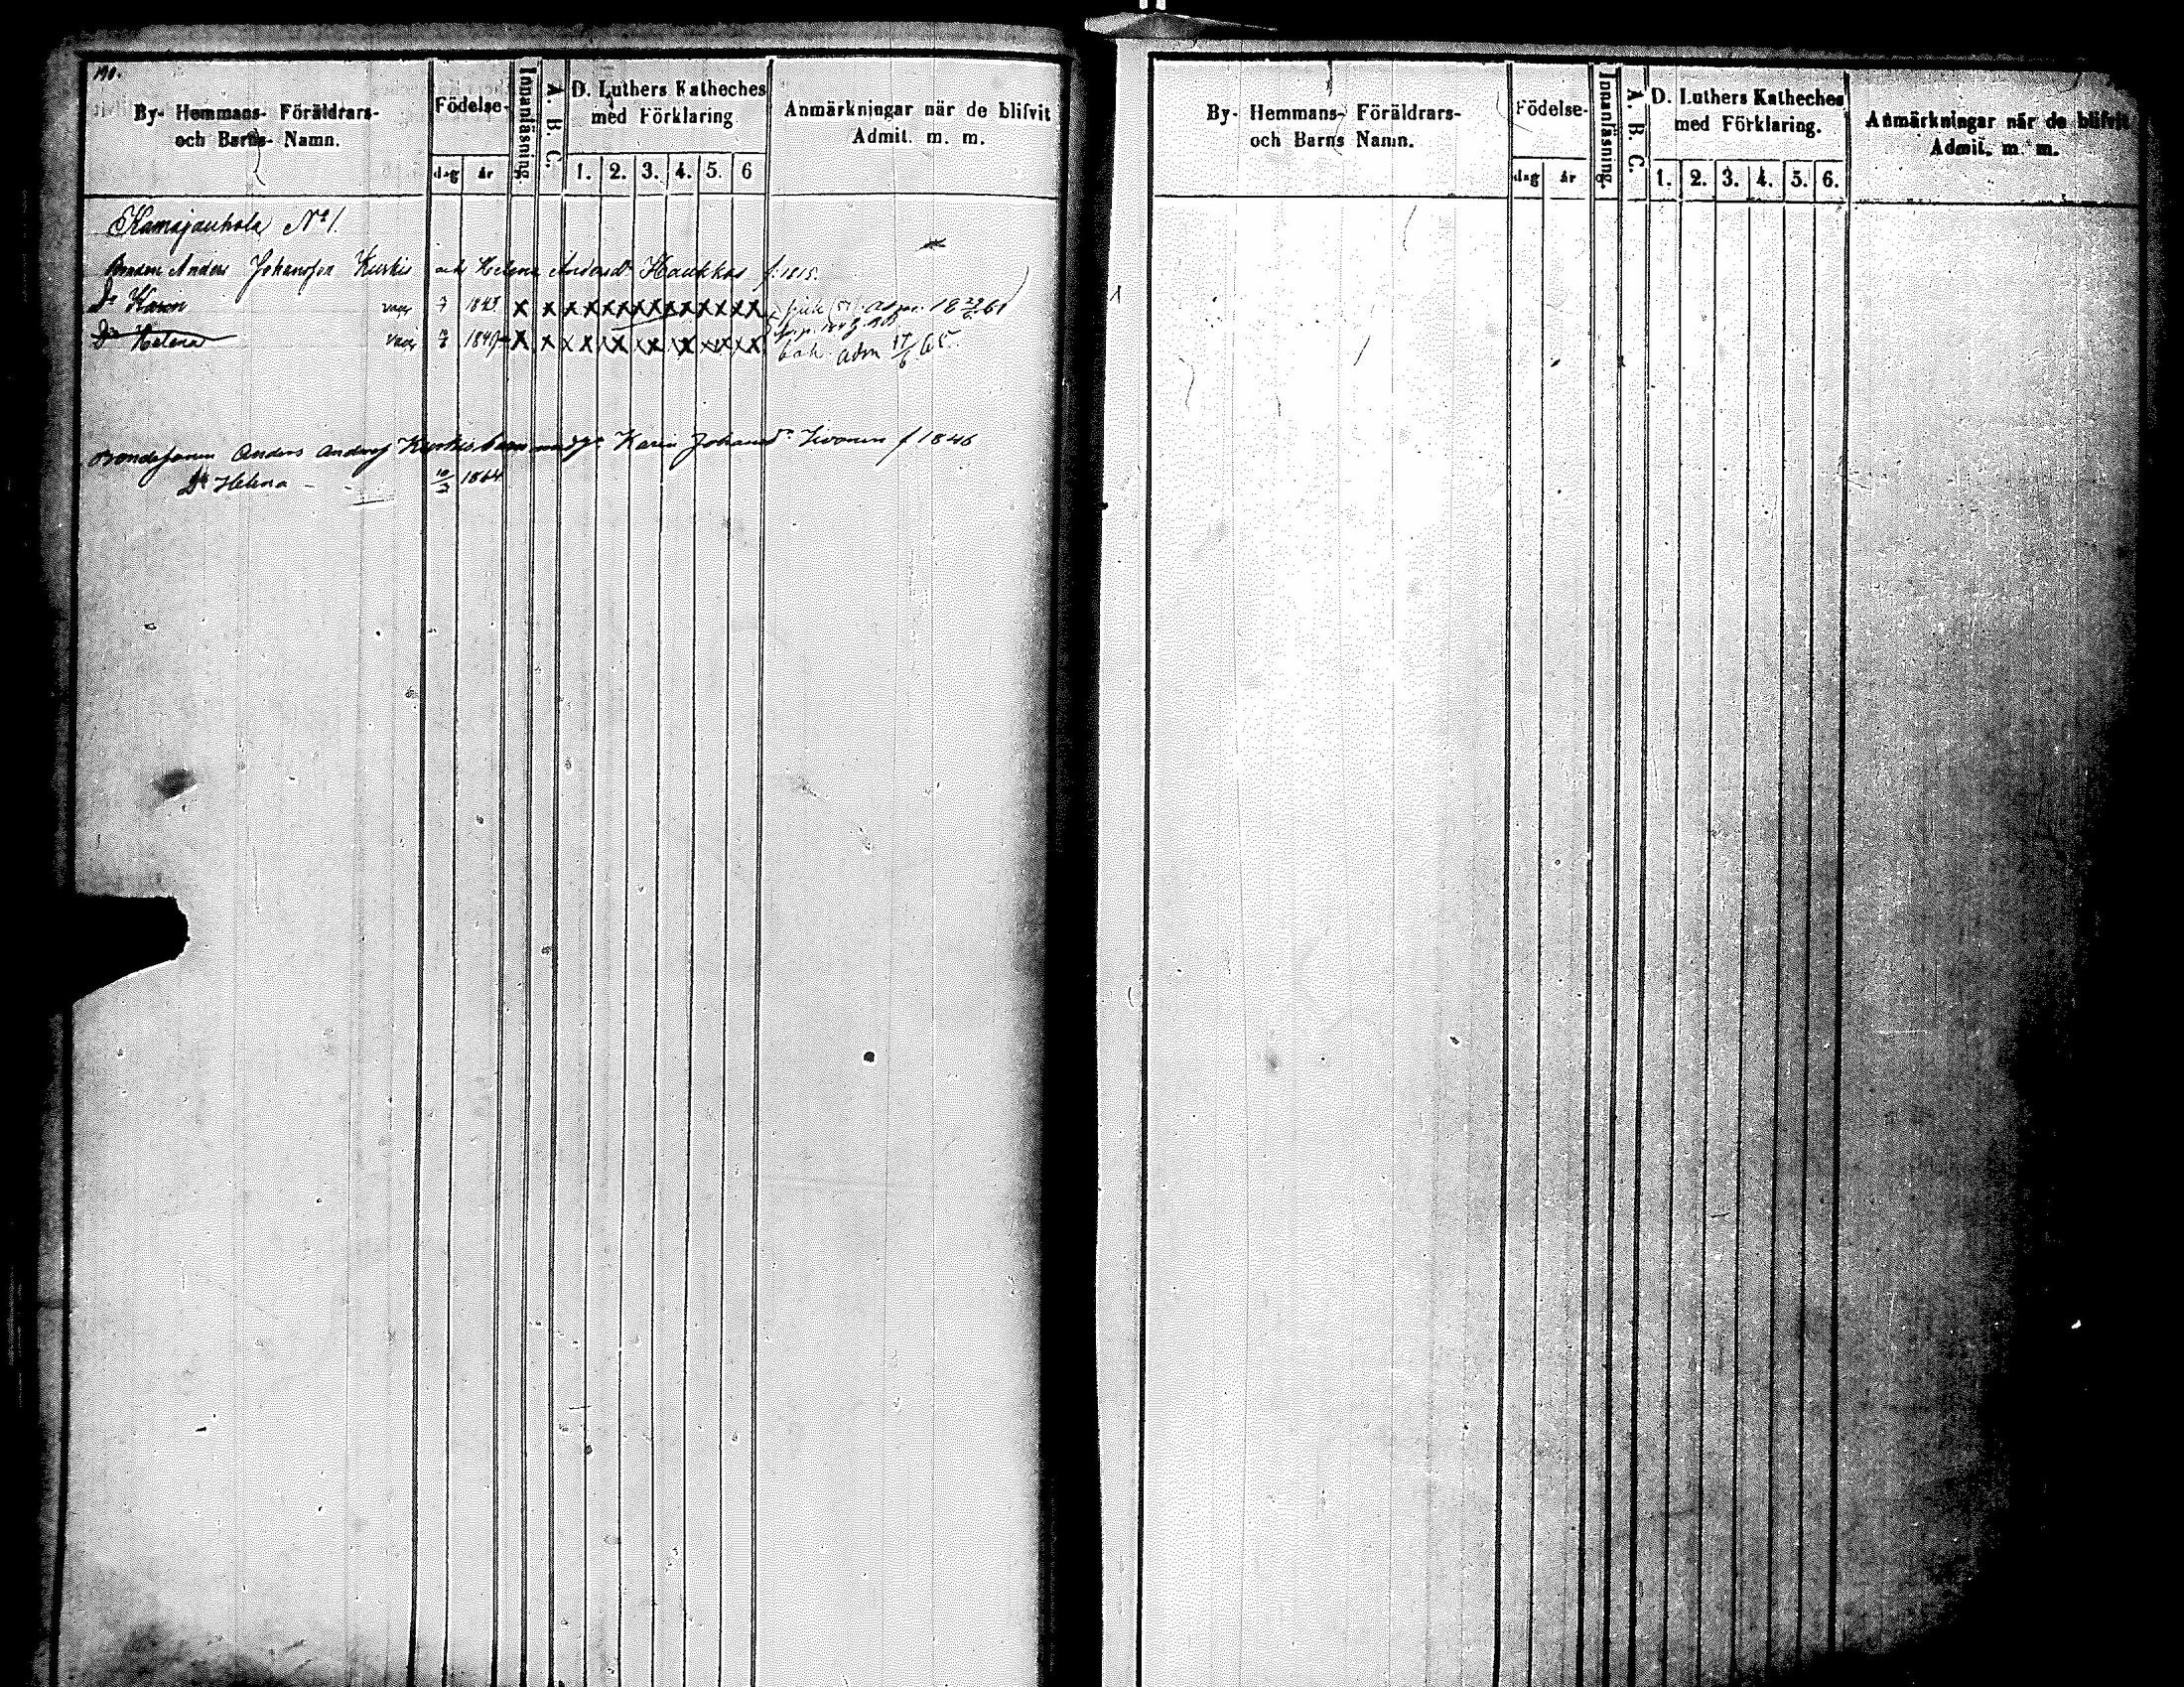 190.
By- Hemmans- Föräldrars-
och Barns- Namn.
Födelse-
dag år
Innanläsning.
A. B. C.
D. Luthers Katheches
med Förklaring
1. 2. 3. 4. 5. 6
Anmärkningar når de blifvit
Admit. m. m.
Kamajauhola No 1.
Bonden Anders Johansson Kurkis och Helena Andersdr Haukkas f. 1815.
Dr Karin vacc 7 1843 x x x x x x x x x x x x x x adm. 18 61
Dr Helena vacc 1849 x x x x x x x x x x x x x x
adm 17/6 65
Bondesonen Anders Anders Kurkis barn med Karin Johansdr Sivonen f 1846
Dr Helena 10/2 1864
By- Hemmans- Föräldrars-
och Barns Namn.
Födelse-
dag år
Innanläsning.
A. B. C.
D. Luthers Katheches
med Förklaring.
1. 2. 3. 4. 5. 6.
Anmärkningar når de blifvit
Admit. m. m.